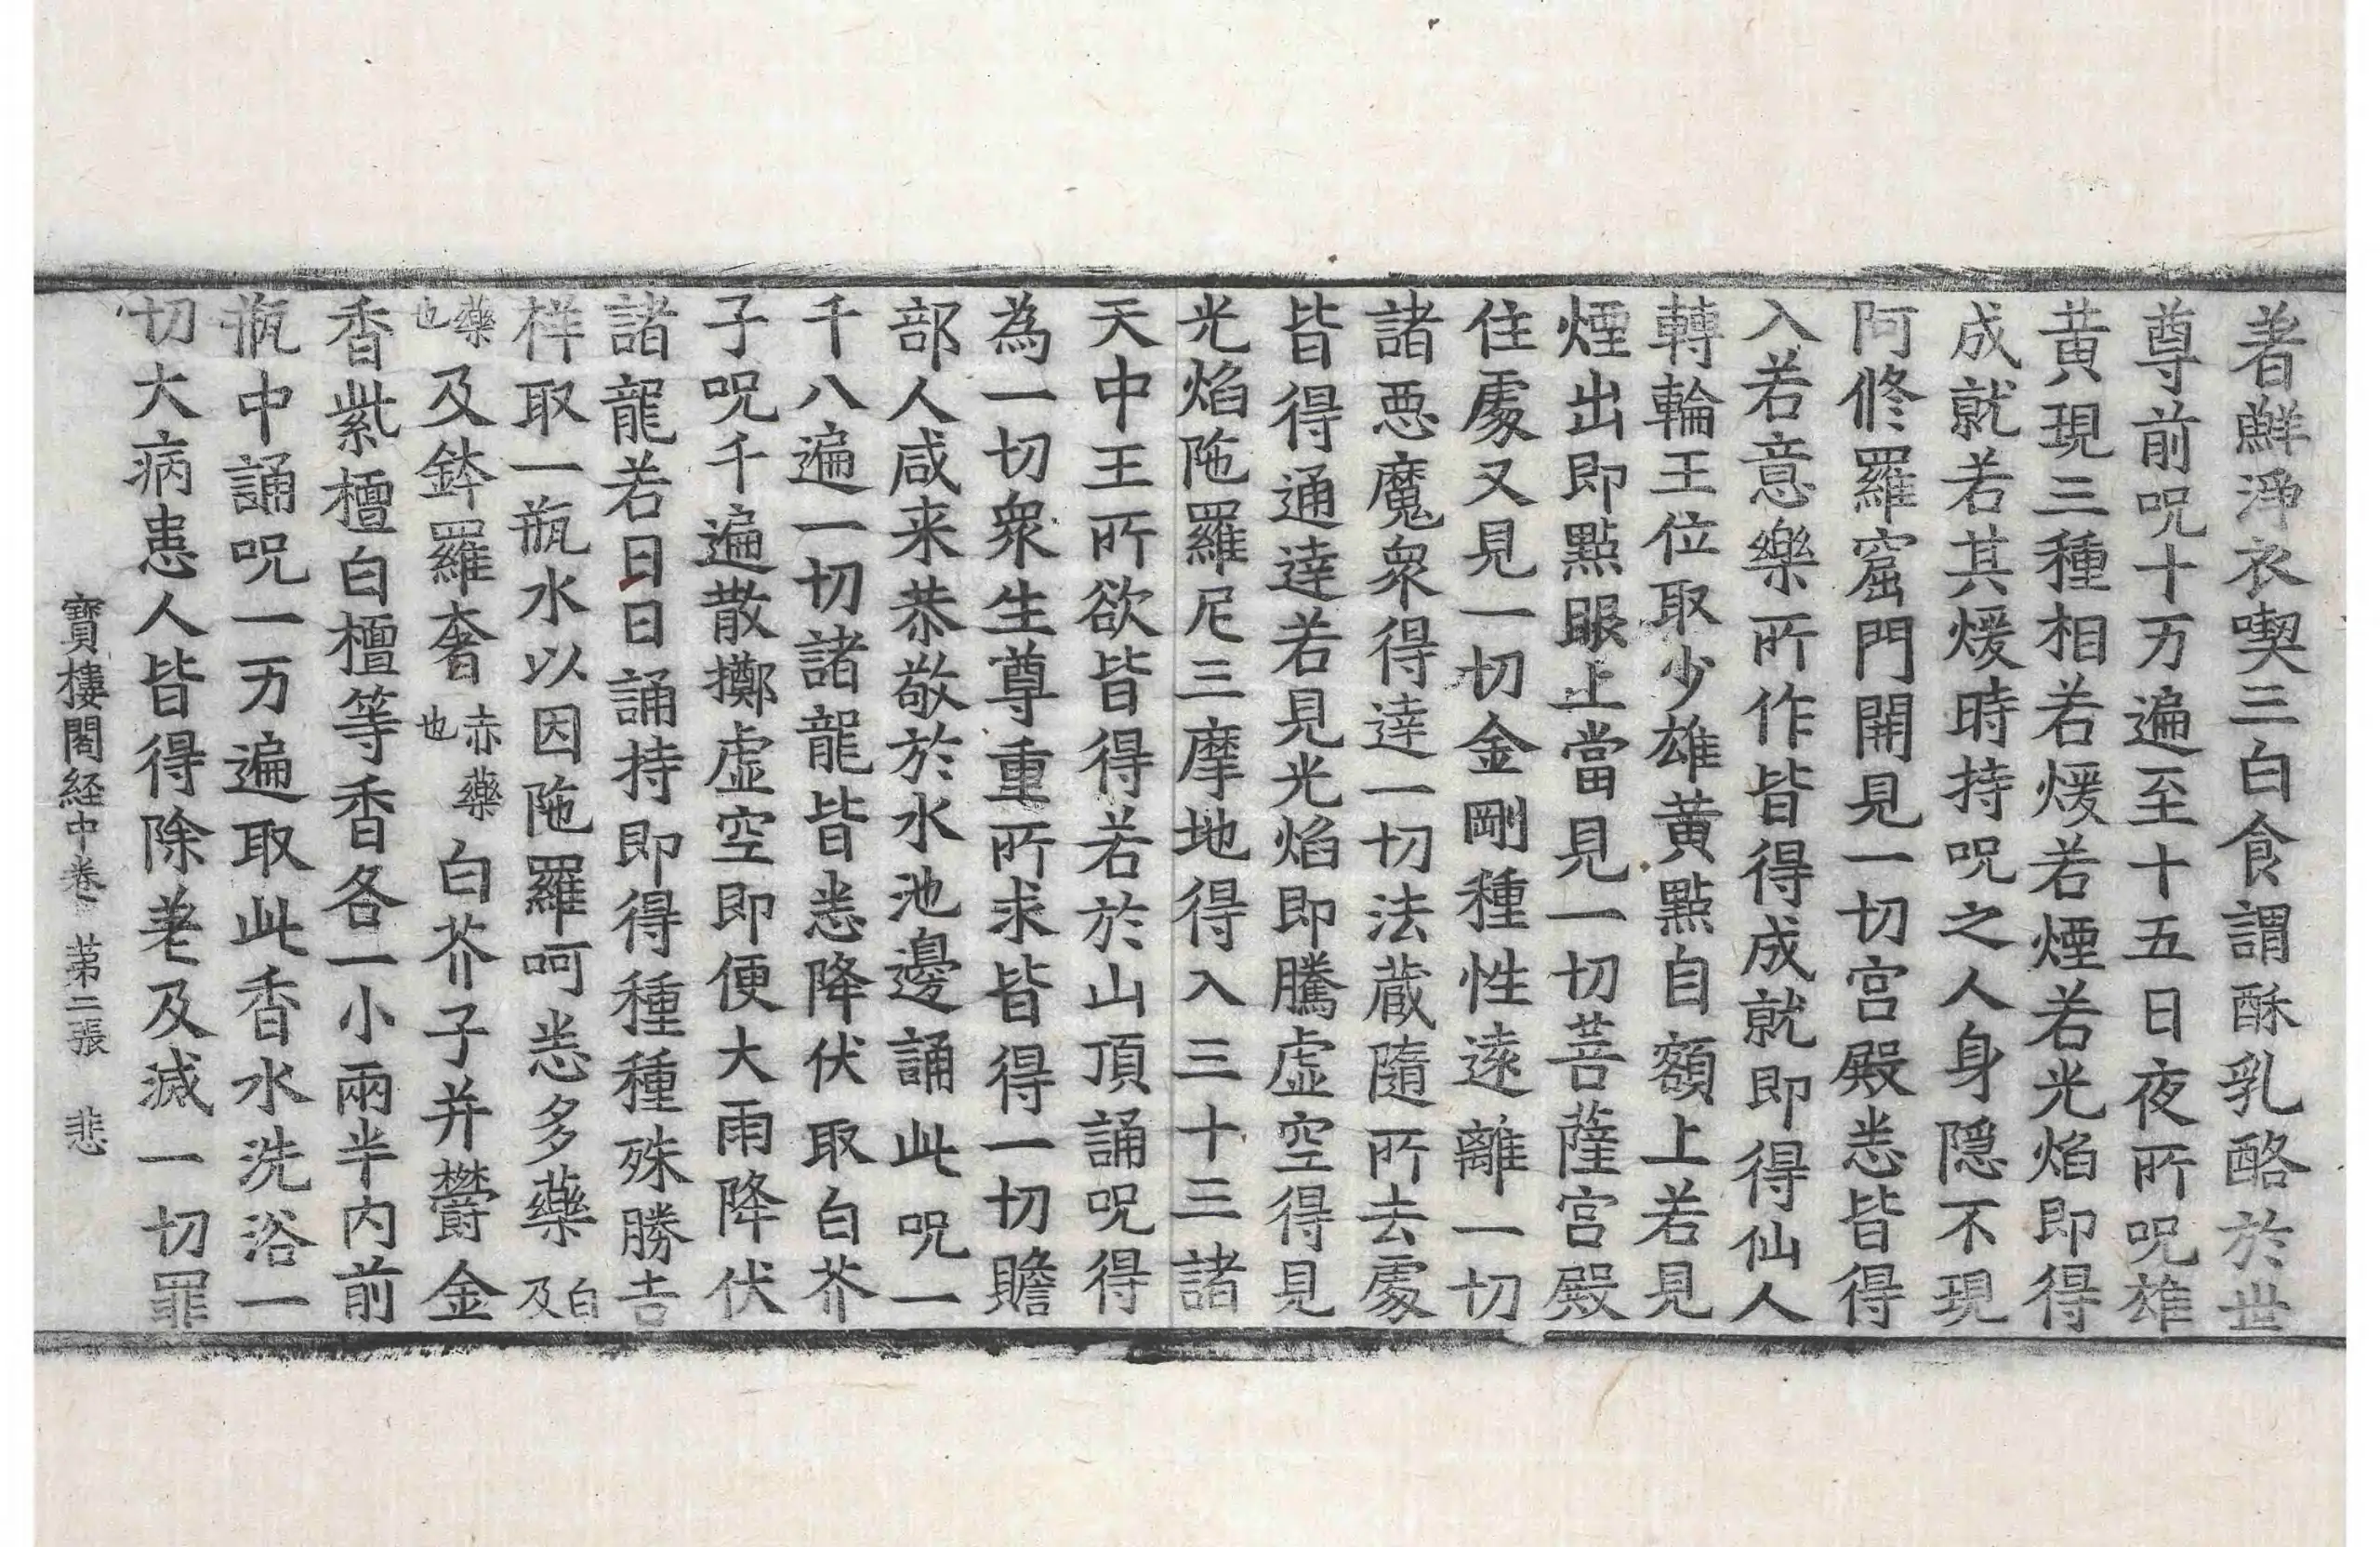 著鮮淨衣喫三白食謂酥乳酪於世
尊前呪十万遍至十五日夜所呪雄
黄現三種相若煖若煙若光焰即得
成就若其煖時持呪之人身隱不現
阿修羅窟門開見一切宮殿悉皆得
入若意樂所作皆得成就即得仙人
轉輪王位取少雄黄點自額上若見
煙出即點眼上當見一切菩薩宮殿
住處又見一切金剛種性遠離一切
諸惡魔衆得達一切法藏隨所去處
皆得通達若見光焰即騰虛空得見
光焰陁羅尼三摩地得入三十三諸
天中王所欲皆得若於山頂誦呪得
為一切衆生尊重所求皆得一切贍
部人咸来恭敬於水池邊誦此呪一
千八遍一切諸龍皆悉降伏取白芥
子呪千遍散擲虛空即便大雨降伏
諸龍若日日誦持即得種種殊勝吉
样取一瓶水以因陁羅呵悉多藥白及
藥也及鉢羅奢赤藥也白芥子并欝金
香紫檀白檀等香各一小兩半内前
瓶中誦呪一万遍取此香水洗浴一
切大病患人皆得除差及滅一切罪
寶樓閣経中卷 苐二張 悲